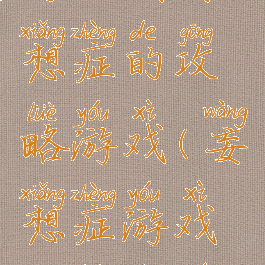 xiǎng zhèng de gōng
想症的攻
lüè yóu xì wàng
略游戏(妄
xiǎng zhèng yóu xì
想症游戏